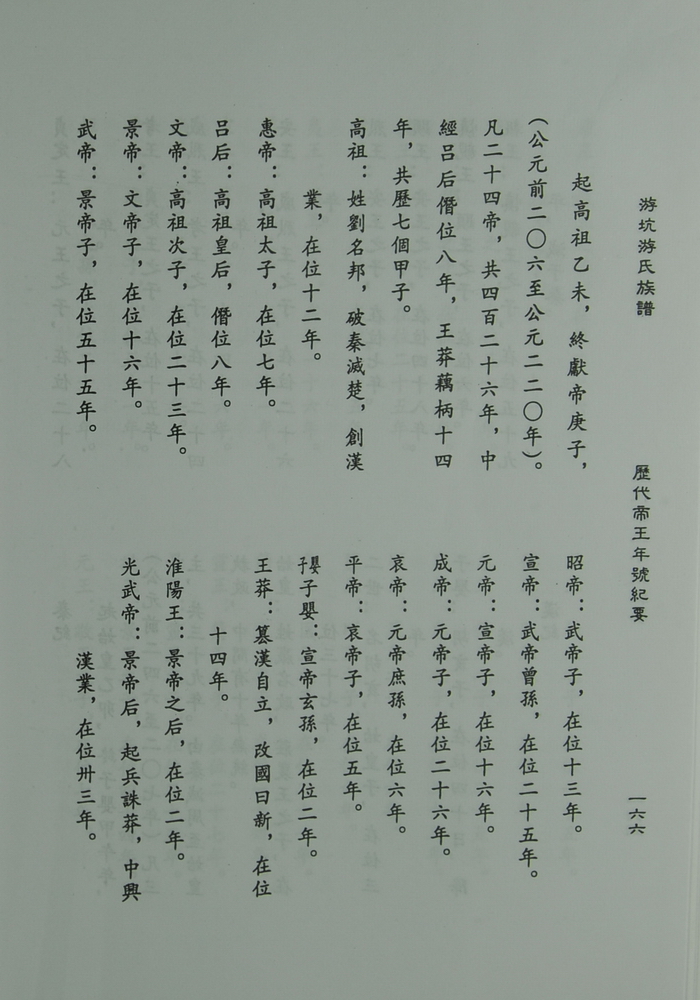 游坑游氏族譜
歷代帝王年號紀要
一六六
起高祖乙未，終獻帝庚子，
（公元前二〇六至公元二二〇年）。
凡二十四帝，共四百二十六年，中
經呂后僭位八年，王莽藕柄十四
年，共歷七個甲子。
高祖：姓劉名邦，破秦滅楚，創漢
業，在位十二年。
惠帝：高祖太子，在位七年。
呂后：高祖皇后，僭位八年。
文帝：高祖次子，在位二十三年。
景帝：文帝子，在位十六年。
武帝：景帝子，在位五十五年。
昭帝：武帝子，在位十三年。
宣帝：武帝曾孫，在位二十五年。
元帝：宣帝子，在位十六年。
成帝：元帝子，在位二十六年。
哀帝：元帝庶孫，在位六年。
平帝：哀帝子，在位五年。
孺子嬰：宣帝玄孫，在位二年。
王莽：篡漢自立，改國曰新，在位
十四年。
淮陽王：景帝之后，在位二年。
光武帝：景帝后，起兵誅莽，中興
漢業，在位卅三年。